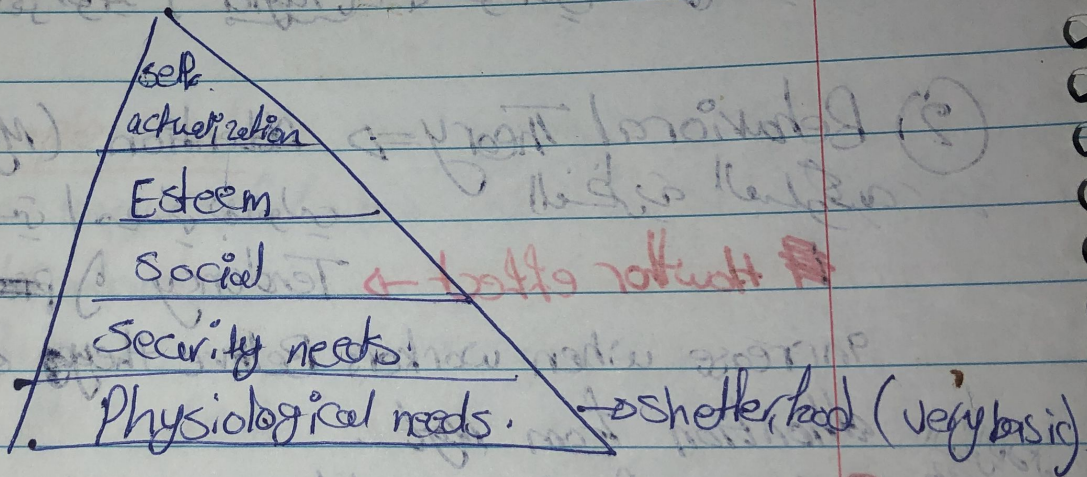 self.
actualization
Esteem
Social
Security needs.
Physiological needs. → Shelter, food (very basic)